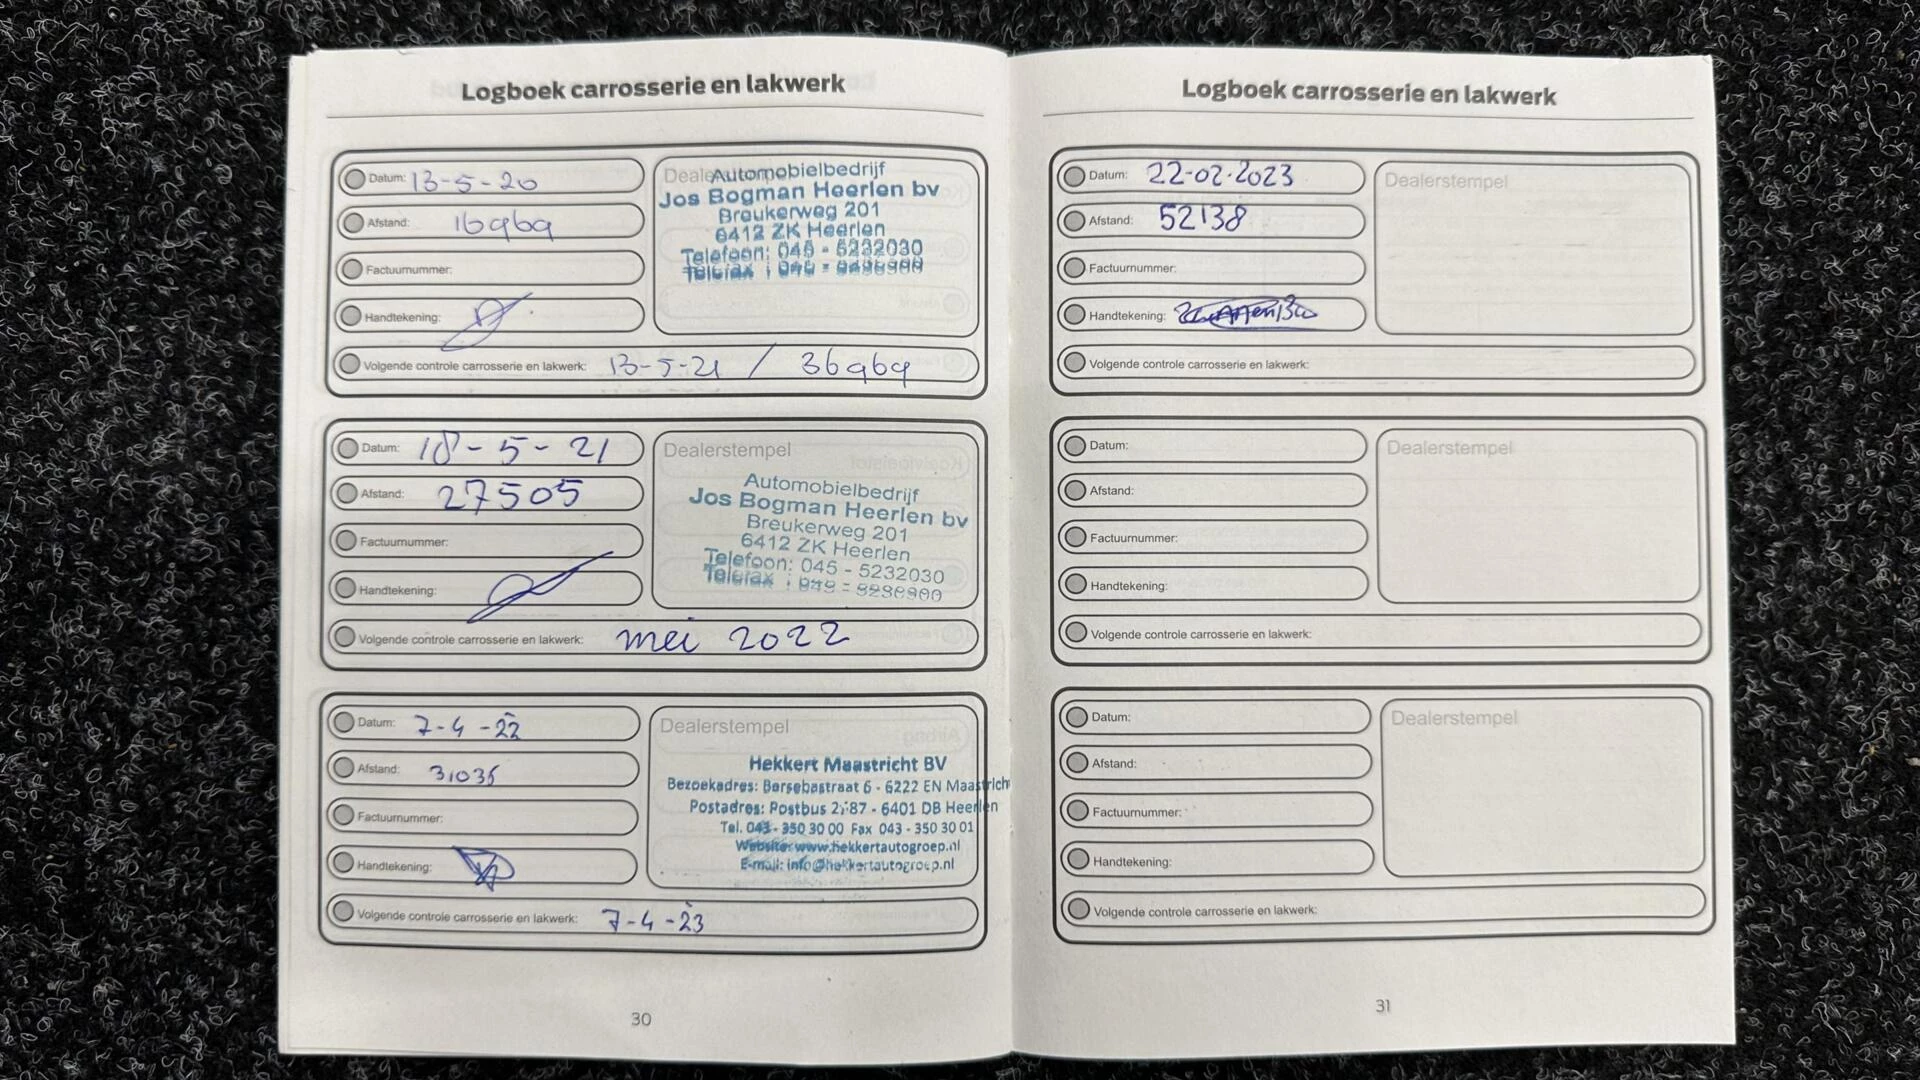 Logboek carrosserie en lakwerk
Datum: 13-5-20
Afstand: 16969
Factuurnummer:
Handtekening:
Automobielbedrijf
Jos Bogman Heerlen bv
Breukerweg 201
6412 ZK Heerlen
Telefoon: 045 - 5232030
Telefax :
Volgende controle carrosserie en lakwerk: 13-5-21 / 36969
Datum: 18-5-21
Afstand: 27505
Factuurnummer:
Handtekening:
Dealerstempel
Automobielbedrijf
Jos Bogman Heerlen bv
Breukerweg 201
6412 ZK Heerlen
Telefoon: 045 - 5232030
Telefax :
Volgende controle carrosserie en lakwerk: mei 2022
Datum: 7-4-22
Afstand: 31035
Factuurnummer:
Handtekening:
Dealerstempel
Hekkert Maastricht BV
Bezoekadres: Bersebastraat 6 - 6222 EN Maastrich
Postadres: Postbus 2;87 - 6401 DB Heerlen
Tel. 043 - 350 30 00 Fax 043 - 350 30 01
Website: www.hekkertautogroep.nl
E-mail: info@hekkertautogroep.nl
Volgende controle carrosserie en lakwerk: 7-4-23
30
Logboek carrosserie en lakwerk
Datum: 22-02-2023
Afstand: 52138
Factuurnummer:
Handtekening:
Dealerstempel
Volgende controle carrosserie en lakwerk:
Datum:
Afstand:
Factuurnummer:
Handtekening:
Dealerstempel
Volgende controle carrosserie en lakwerk:
Datum:
Afstand:
Factuurnummer:
Handtekening:
Dealerstempel
Volgende controle carrosserie en lakwerk:
31